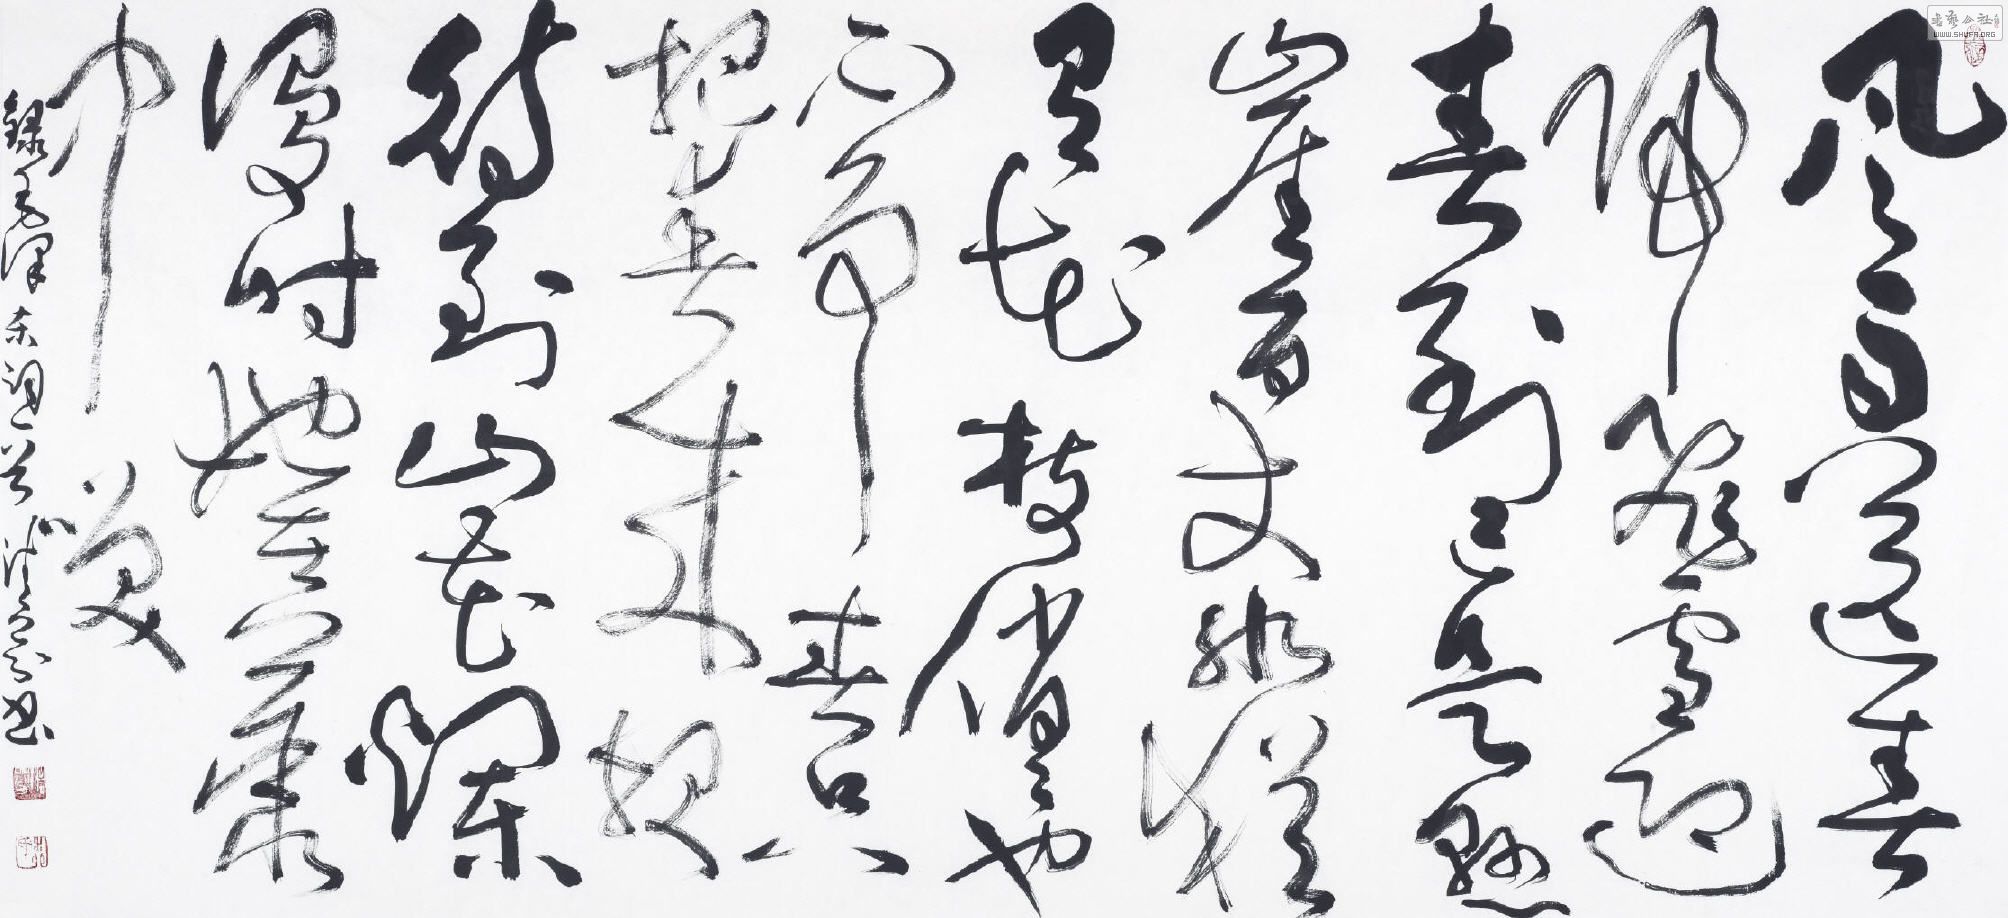 风雨送春
归飞雪迎
春到已是悬
崖百丈冰犹
有花枝俏俏也
不争春只
把春来报
待到山花烂
漫时她在丛
中笑
録毛泽东词一首 书
书艺公社
WWW.SHUFA.ORG